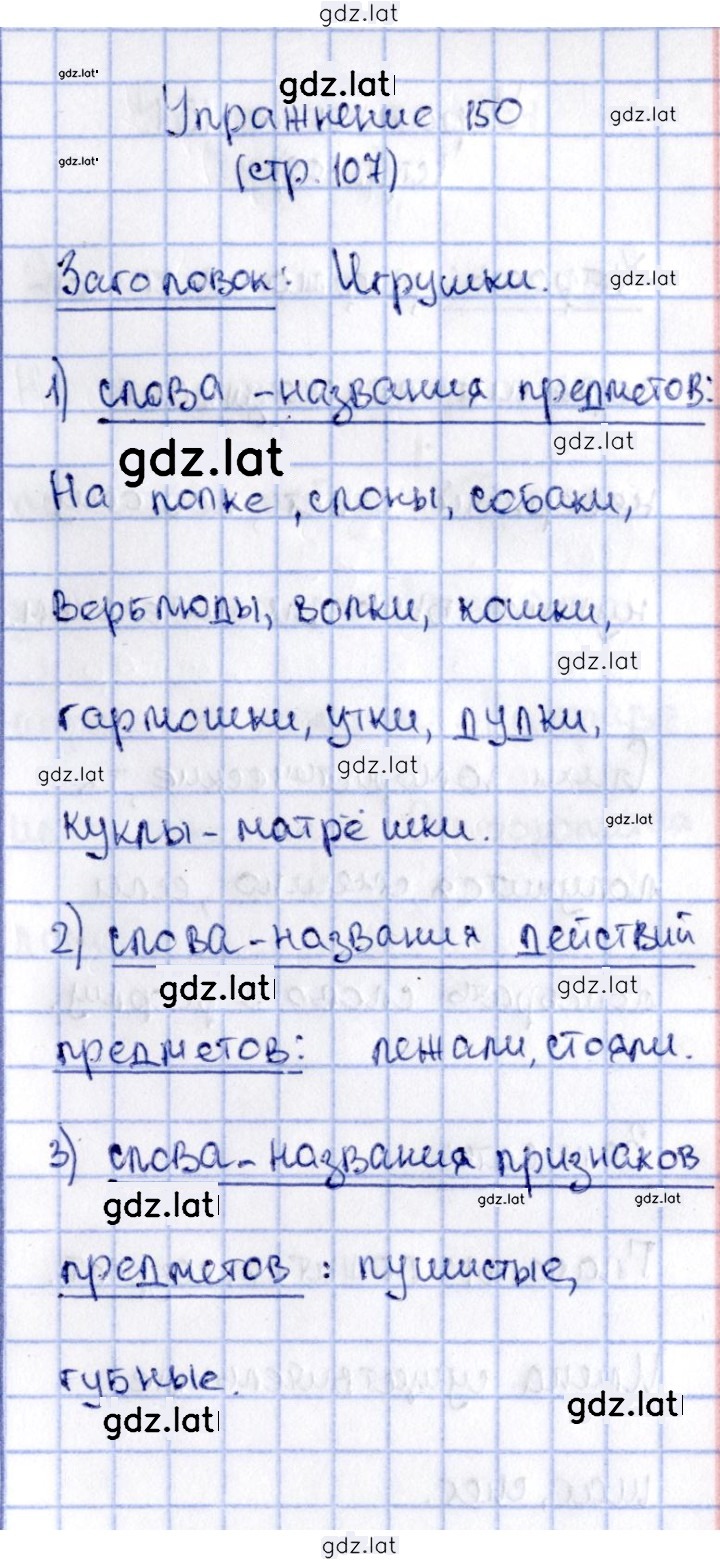 gdz.lat
gdz.lat
gdz.lat
Упражнение 150
gdz.lat
gdz.lat
(стр. 107)
Заголовок: Игрушки.
gdz.lat
1) слова-названия предметов:
gdz.lat
gdz.lat
На полке, слоны, собаки,
верблюды, волки, кошки,
gdz.lat
гармошки, утки, дудки,
gdz.lat
gdz.lat
куклы-матрёшки.
gdz.lat
2) слова-названия действий
gdz.lat
gdz.lat
предметов: лежали, стояли.
3) слова-названия признаков
gdz.lat
gdz.lat
gdz.lat
предметов: пушистые,
губные.
gdz.lat
gdz.lat
gdz.lat